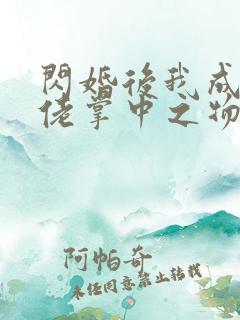 閃婚後我成
佬掌中之物
阿帕奇
未经同意禁止转载